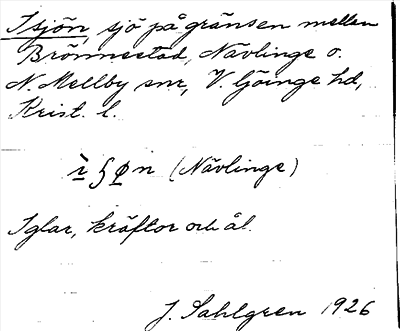 Isjön, sjö på gränsen mellan
Brönnestad, Nävlinge o.
N. Mellby snr, V. Göinge hd,
Krist. l.
ìʃøn (Nävlinge)
Iglar, kräftor och ål.
J. Sahlgren 1926